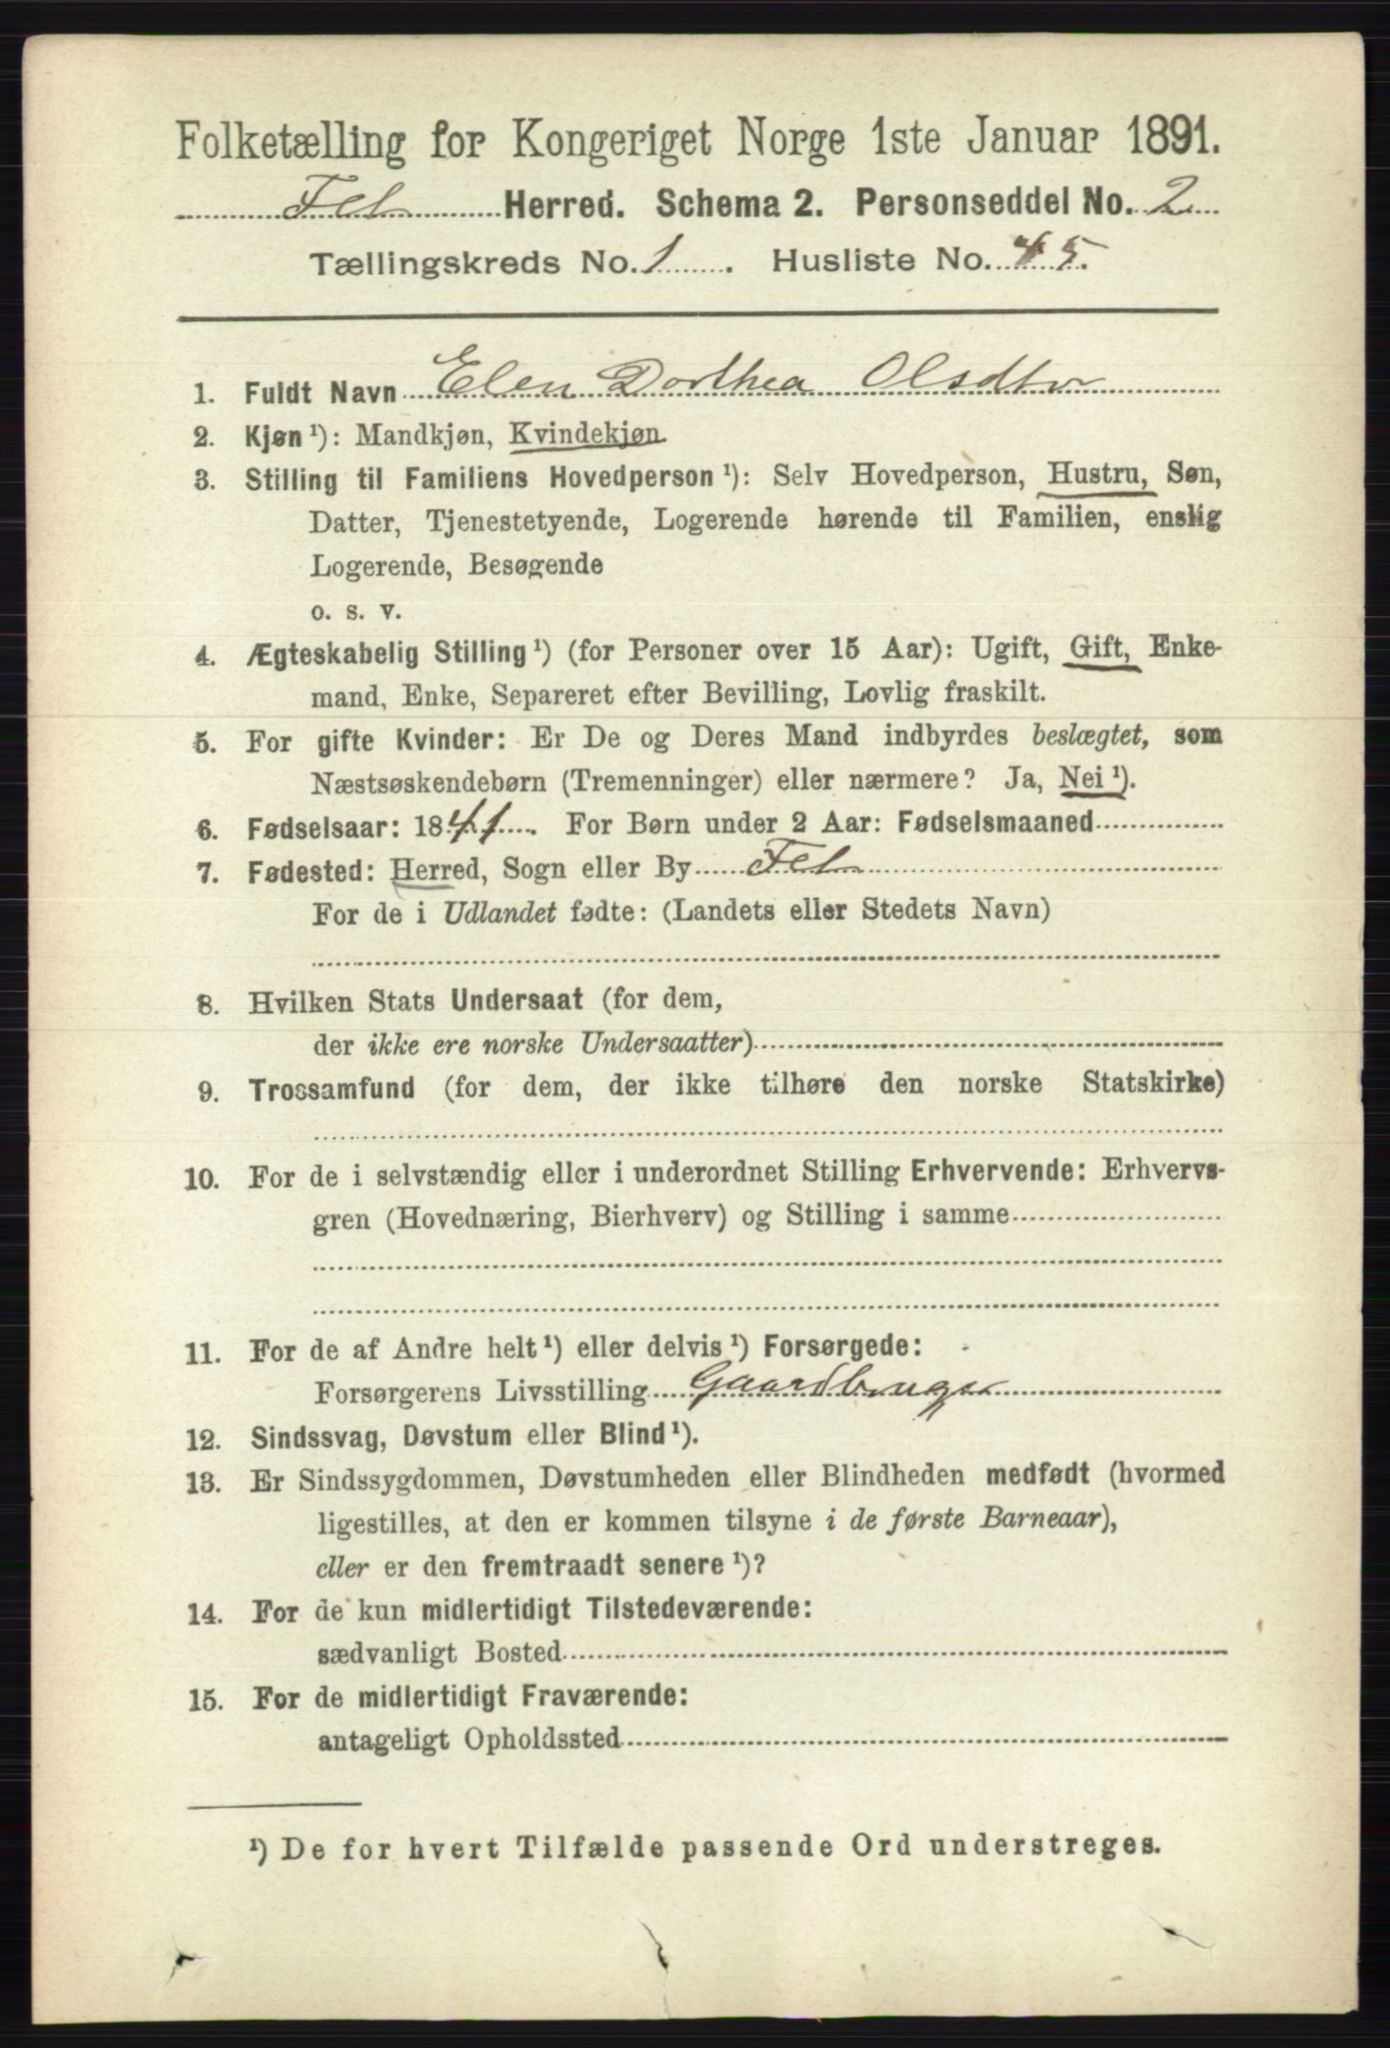 Folketælling for Kongeriget Norge 1ste Januar 1891.
Fet Herred. Schema 2. Personseddel No. 2
Tællingskreds No. 1. Husliste No. 45.
1. Fuldt Navn Elen Dorthea Olsdtr
2. Kjøn¹): Mandkjøn, Kvindekjøn.
3. Stilling til Familiens Hovedperson¹): Selv Hovedperson, Hustru, Søn,
Datter, Tjenestetyende, Logerende hørende til Familien, enslig
Logerende, Besøgende
o. s. v.
4. Ægteskabelig Stilling¹) (for Personer over 15 Aar): Ugift, Gift, Enke-
mand, Enke, Separeret efter Bevilling, Lovlig fraskilt.
5. For gifte Kvinder: Er De og Deres Mand indbyrdes beslægtet, som
Næstsøskendebørn (Tremenninger) eller nærmere? Ja, Nei¹).
6. Fødselsaar: 1841. For Børn under 2 Aar: Fødselsmaaned
7. Fødested: Herred, Sogn eller By Fet
For de i Udlandet fødte: (Landets eller Stedets Navn)
8. Hvilken Stats Undersaat (for dem,
der ikke ere norske Undersaatter)
9. Trossamfund (for dem, der ikke tilhøre den norske Statskirke)
10. For de i selvstændig eller i underordnet Stilling Erhvervende: Erhvervs-
gren (Hovednæring, Bierhverv) og Stilling i samme
11. For de af Andre helt¹) eller delvis¹) Forsørgede:
Forsørgerens Livsstilling Gaardbruger
12. Sindssvag, Døvstum eller Blind¹).
13. Er Sindssygdommen, Døvstumheden eller Blindheden medfødt (hvormed
ligestilles, at den er kommen tilsyne i de første Barneaar),
eller er den fremtraadt senere¹)?
14. For de kun midlertidigt Tilstedeværende:
sædvanligt Bosted
15. For de midlertidigt Fraværende:
antageligt Opholdssted
¹) De for hvert Tilfælde passende Ord understreges.